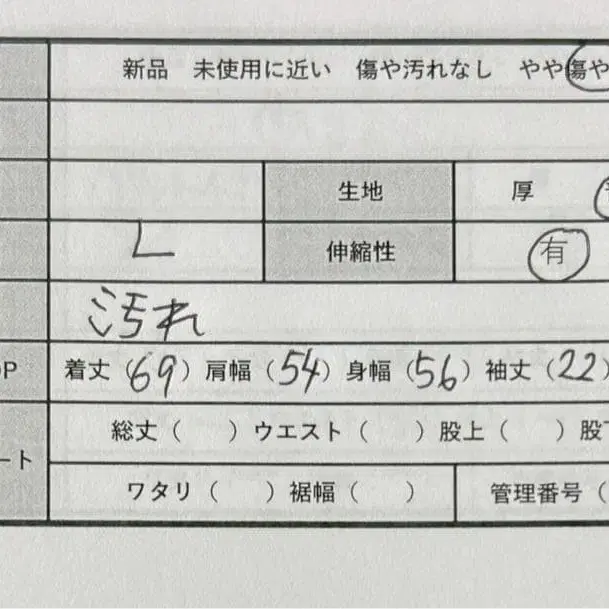 新品 未使用に近い 傷や汚れなし やや傷や
生地 厚
L 伸縮性 有
汚れ
OP 着丈(69) 肩幅(54) 身幅(56) 袖丈(22)
総丈( ) ウエスト( ) 股上( ) 股下
ート
ワタリ( ) 裾幅( ) 管理番号(